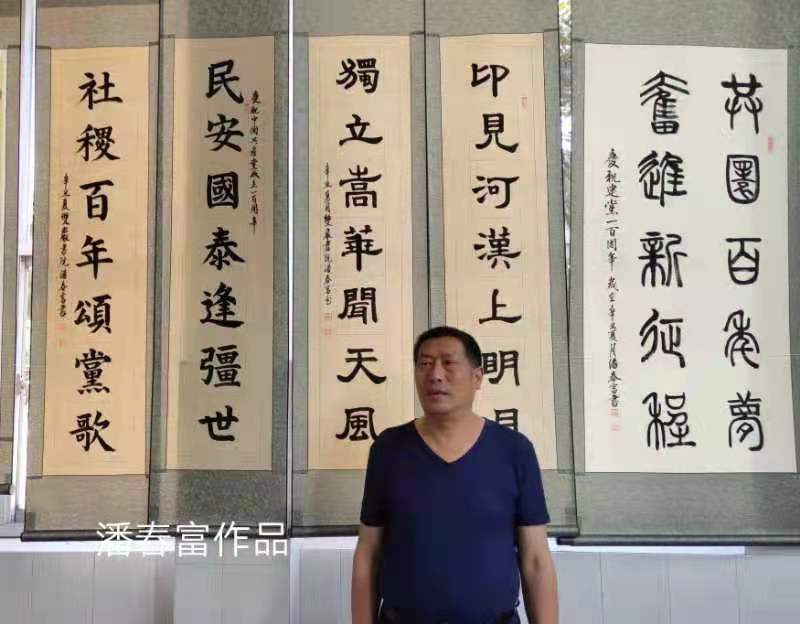 共圓百年夢
奮進新征程
慶祝建黨一百周年 歲在辛丑夏月潘春富書
印見河漢上明月
獨立嵩華聞天風
辛丑夏月雙巖書院潘春富書
慶祝中國共產黨成立一百周年
民安國泰逢彊世
社稷百年頌黨歌
辛丑夏雙巖書院潘春富書
潘春富作品